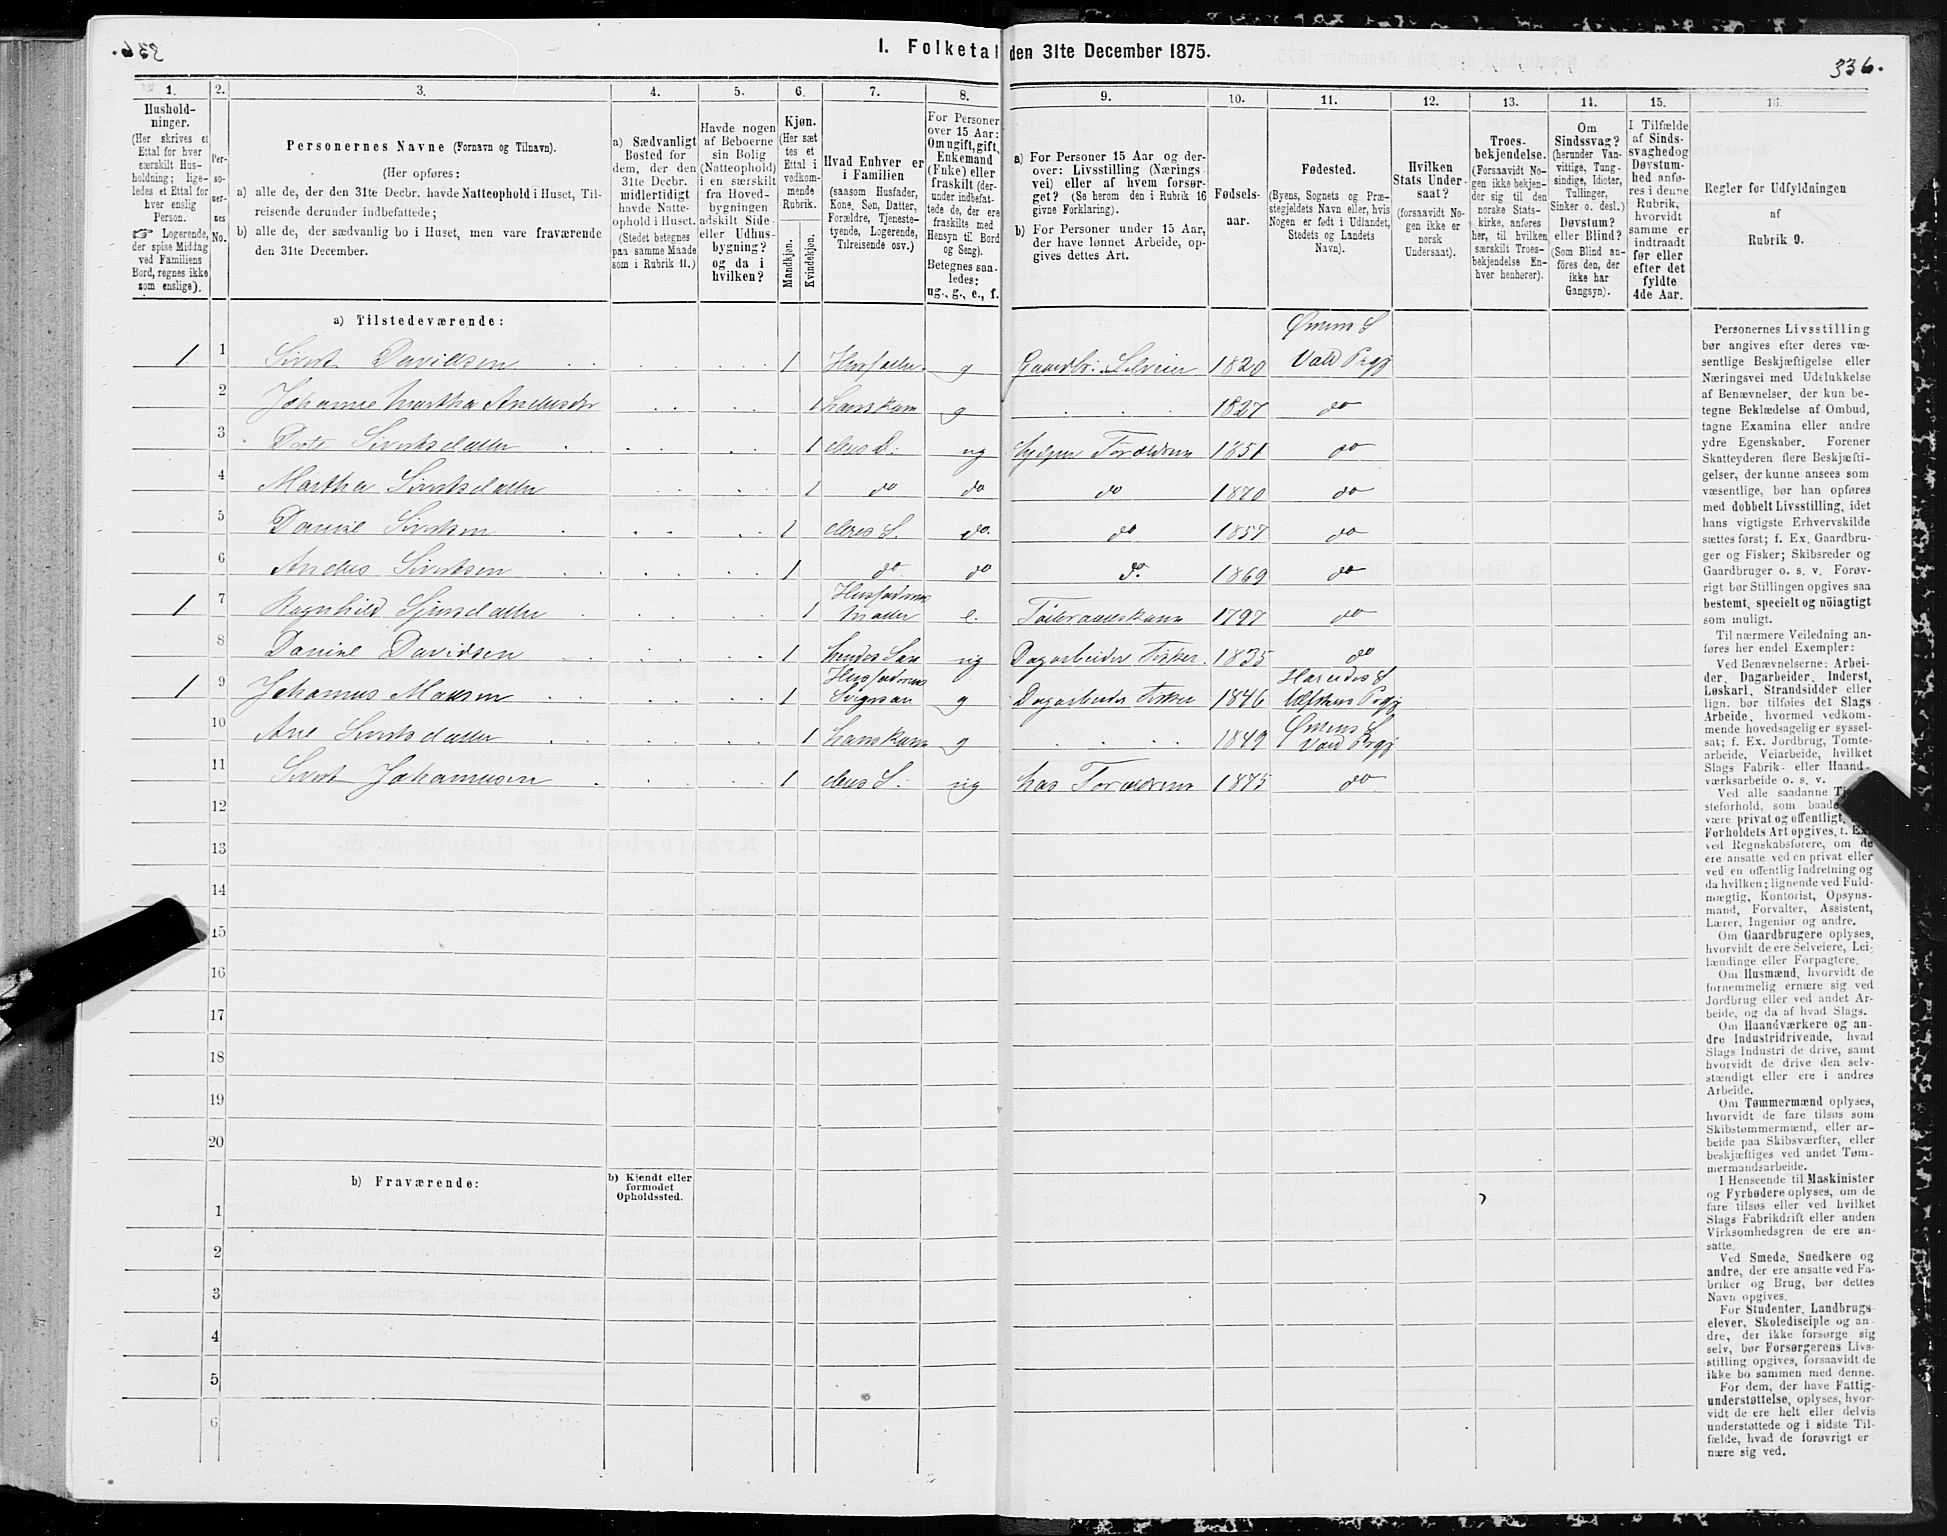 336.
I. Folketal den 31te December 1875.
336.
1. 2. 3. 4. 5. 6. 7. 8. 9. 10. 11. 12. 13. 14. 15. 16.
Hushold-
ninger.
(Her skrives et
Ettal for hver
særskilt Hus-
holdning; lige-
ledes et Ettal for
hver enslig
Person.
☞ Logerende,
der spise Middag
ved Familiens
Bord, regnes ikke
som enslige).
Per-
so-
ner-
nes
No.
Personernes Navne (Fornavn og Tilnavn).
(Her opføres:
a) alle de, der den 31te Decbr. havde Natteophold i Huset, Til-
reisende derunder indbefattede;
b) alle de, der sædvanlig bo i Huset, men vare fraværende
den 31te December.
a) Sædvanligt
Bosted for
dem, der den
31te Decbr.
midlertidigt
havde Natte-
ophold i Huset.
(Stedet betegnes
paa samme Maade
som i Rubrik 11.)
Havde nogen
af Beboerne
sin Bolig
(Natteophold)
i en særskilt
fra Hoved-
bygningen
adskilt Side-
eller Udhus-
bygning?
og da i
hvilken?
Kjøn.
(Her sæt
tes et
Ettal i
vedkom-
mende
Rubrik.
Mandkjøn.
Kvindekjøn.
Hvad Enhver er
i Familien
(saasom Husfader,
Kone, Søn, Datter,
Forældre, Tjeneste-
tyende, Logerende,
Tilreisende osv.)
For Personer
over 15 Aar:
Om ugift, gift,
Enkemand
(Enke) eller
fraskilt (der-
under indbefat-
tede de, der ere
fraskilte med
Hensyn til Bord
og Seng).
Betegnes saa-
ledes:
ug., g., e., f.
a) For Personer 15 Aar og der-
over: Livsstilling (Nærings-
vei) eller af hvem forsør-
get? (Se herom den i Rubrik 16
givne Forklaring).
b) For Personer under 15 Aar,
der have lønnet Arbeide, op-
gives dettes Art.
Fødsels-
aar.
Fødested.
(Byens, Sognets og Præ-
stegjeldets Navn eller, hvis
Nogen er født i Udlandet,
Stedets og Landets
Navn).
Hvilken
Stats Under-
saat?
(forsaavidt No-
gen ikke er
norsk
Undersaat).
Troes-
bekjendelse.
(Forsaavidt No-
gen ikke bekjen-
der sig til den
norske Stats-
kirke, anføres
her, til hvilken
særskilt Troes-
bekjendelse En-
hver henhører).
Om
Sindssvag?
(herunder Van-
vittige, Tung-
sindige, Idioter,
Tullinger,
Sinker o. desl.)
Døvstum?
eller Blind?
(Som Blind an-
føres den, der
ikke har
Gangsyn).
I Tilfælde
af Sinds-
svaghedog
Døvstum-
hed anfø-
res i denne
Rubrik,
hvorvidt
samme er
indtraadt
før eller
efter det
fyldte
4de Aar.
Regler for Udfyldningen
af
Rubrik 9.
a) Tilstedeværende:
1 1 Sivert Davidsen 1 Husfader g Gaardbr. Selveier 1820 Ømens S Vold Prgj
2 Johanne Martha Andersdr 1 hans kone g 1827 do
3 Dorte Sivertsdatter 1 deres D. ug hjelper Forældrene 1851 do
4 Martha Sivertsdatter 1 do do do 1870 do
5 Daniel Sivertsen 1 deres S. do. do 1857 do
6 Anders Sivertsen 1 do do do. 1869 do
1 7 Ragnhild Sjursdatter 1 Husfaderens Moder e. Føderaadskone 1797 do
8 Daniel Davidsen 1 hendes Søn ug Dagarbeider Fisker. 1835 do
1 9 Johannes Monsen 1 Husfaderens Svigersøn g Dagarbeider Fisker 1846 Hareides S Ulfstens Prgj
10 Ane Sivertsdatter 1 hans kone g 1849 Ømens S Vold Prgj
11 Sivert Johannesen 1 deres S. ug hos Forældrene 1875 do
12
13
14
15
16
17
18
19
20
b) Fraværende:
b) Kjendt eller
formodet
Opholdssted.
1
2
3
4
5
6
Personernes Livsstilling
bør angives efter deres væ-
sentlige Beskjæftigelse eller
Næringsvei med Udelukkelse
af Benævnelser, der kun be-
tegne Beklædelse af Ombud,
tagne Examina eller andre
ydre Egenskaber. Forener
Skatteyderen flere Beskjæfti-
gelser, der kunne ansees som
væsentlige, bør han opføres
med dobbelt Livsstilling, idet
hans vigtigste Erhvervskilde
sættes først; f. Ex. Gaardbru-
ger og Fisker; Skibsreder og
Gaardbruger o. s. v. Forøv-
rigt bør Stillingen opgives saa
bestemt, specielt og nöiagtigt
som muligt.
Til nærmere Veiledning an-
føres her endel Exempler:
Ved Benævnelserne: Arbei-
der, Dagarbeider, Inderst,
Løskarl, Strandsidder eller
lign. bør tilføies det Slags
Arbeide, hvormed vedkom-
mende hovedsagelig er syssel-
sat; f. Ex. Jordbrug, Tomte-
arbeide, Veiarbeide, hvilket
Slags Fabrik- eller Haand-
værksarbeide o. s. v.
Ved alle saadanne
steforhold, som baade
være privat og offentligt,
Forholdets Art opgives, t. Ex.
ved Regnskabsførere, om de
ere ansatte ved en privat eller
ved en offentlig Indretning og
da hvilken; lignende ved Fuld-
mægtig, Kontorist, Opsyns-
mand, Forvalter, Assistent,
Lærer, Ingeniør og andre.
Om Gaardbrugere oplyses,
hvorvidt de ere Selveiere, Lei-
lændinge eller Forpagtere.
Om Husmænd, hvorvidt de
fornemmelig ernære sig ved
Jordbrug eller ved andet Ar-
beide, og da af hvad Slags.
Om Haandværkere og an-
dre Industridrivende, hvad
Slags Industri de drive, samt
hvorvidt de drive den selv-
stændigt eller ere i andres
Arbeide.
Om Tømmermænd oplyses,
hvorvidt de fare tilsøs som
Skibstømmermænd, eller ar-
beide paa Skibsværfter, eller
beskjæftiges ved andet Tøm-
mermandsarbeide.
I Henseende til Maskinister
og Fyrbødere oplyses, om de
fare tilsøs eller ved hvilket
Slags Fabrikdrift eller anden
Virksomhedsgren de ere an-
satte.
Ved Smede, Snedkere og
andre, der ere ansatte ved Fa-
briker og Brug, bør dettes
Navn opgives.
For Studenter, Landbrugs-
elever, Skoledisciple og an-
dre, der ikke forsørge sig
selv, bør Forsørgerens Livs-
stilling opgives, forsaavidt de
ikke bo sammen med denne.
For dem, der have Fattig-
understøttelse, oplyses, hvor-
vidt de ere helt eller delvis
understøttede og i sidste Til-
fælde, hvad de forøvrigt er-
nære sig ved.